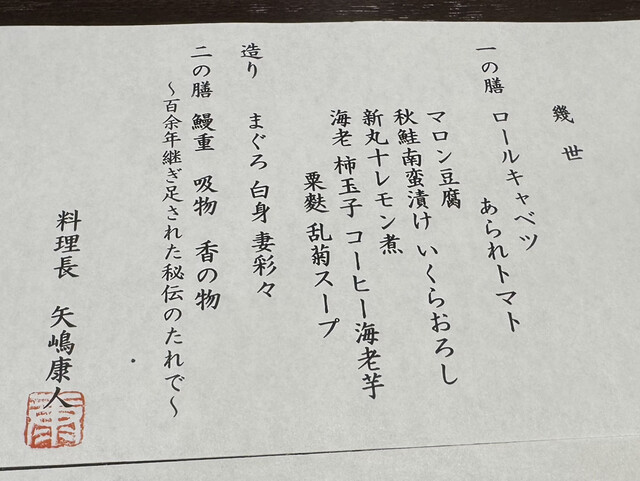 幾世
一の膳 ロールキャベツ
あられトマト
マロン豆腐
秋鮭南蛮漬け いくらおろし
新丸十レモン煮
海老 柿玉子 コーヒー海老芋
粟麩 乱菊スープ
造り まぐろ 白身 妻彩々
二の膳 鰻重 吸物 香の物
～百余年継ぎ足された秘伝のたれで～
料理長 矢嶋康人